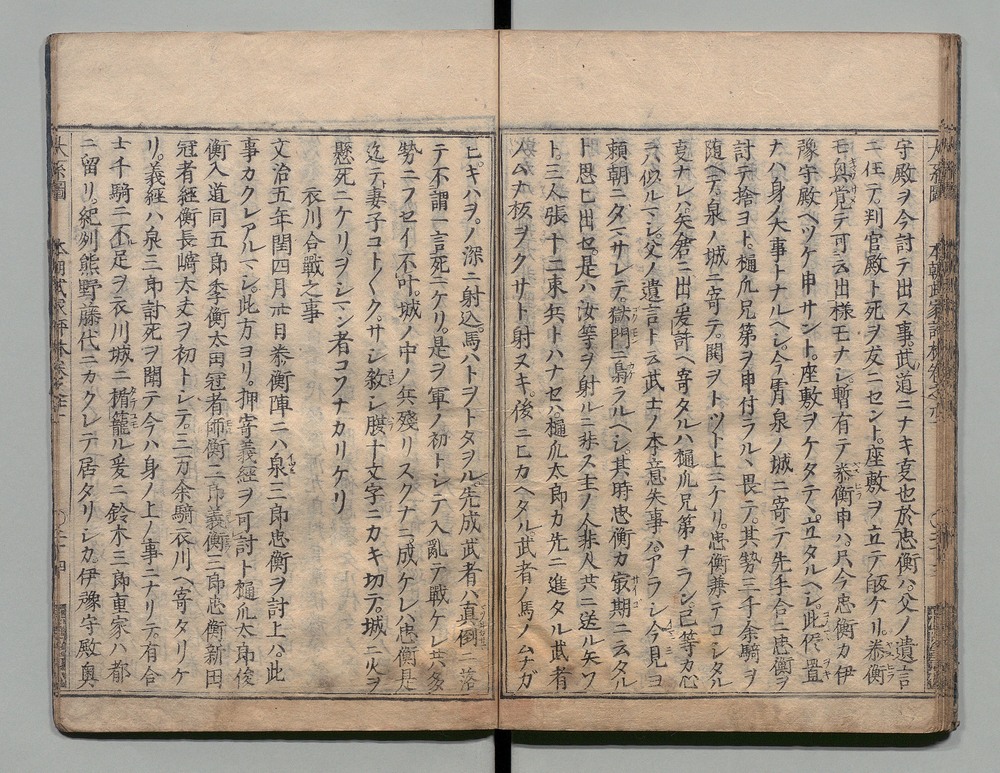 守殿ヲ今討テ出ス事。武道ニナキ支也於忠衡ハ父ノ遺言
ニ任テ。判官殿ト死ヲ友ニセント。座敷ヲ立テ皈ケリ。泰衡
モ興覚テ可云出様モナシ。暫有テ泰衡申ハ。只今忠衡カ伊
豫守殿ヘツケ申サント。座敷ヲケタテヽ立タルヘシ。此侭置
ナハ身ノ大事トナルヘシ。今宵泉ノ城ニ寄テ先手合ニ忠衡ヲ
討テ捨ヨト。樋爪兄弟ヲ申付ラルヽ畏テ。其勢三千余騎ヲ
随ヘテ。泉ノ城ニ寄テ。鬨ヲトツト上ニケリ。忠衡兼テコシタル
支ナレハ。矢倉ニ出
ヘ寄タルハ樋爪兄弟ナラン己等カ心
ニ似ルマシ。父ノ遺言ト云武士ノ本意失事ハ。アラシ今見ヨ
頼朝ニダマサレテ。獄門ニ梟ラルヘシ。其時忠衡カ最期ニ云タル
ト思ヒ出セ是ハ汝等ヲ射ルニ非ス主ノ人非人共ニ送ル矢ソ
ト。三人張十二束兵トハナセハ。樋爪太郎カ先ニ進タル武者
ノムナ板ヲクサト射ヌキ。後ニヒカヘタル。武者ノ馬ノムナガ
ヒ。ギハヲ。ノ深ニ射込。馬ハトヲトタヲル。先成武者ハ真倒ニ落
テ不謂一言死ニケリ。是ヲ軍ノ初トシテ入亂テ戦ケレ共多
勢ニフセイ不叶。城ノ中ノ兵殘リスクナニ成ケレハ忠衡是
迄トテ妻子コトくク。サシ殺シ腹十文字ニカキ切テ。城ニ火ヲ
懸死ニケリ。ヲシマン者コソナカリケリ
衣川合戰之事
文治五年閏四月廿日泰衡陣ニハ泉三郎忠衡ヲ討上ハ此
事カクレアルマシ。此方ヨリ。押寄義經ヲ可討ト樋爪太郎俊
衡入道同五郎季衡太田冠者師衡二郎義衡三郎忠衡新田
冠者經衡長﨑大丈ヲ初トシテ。三万余騎衣川ヘ寄タリケ
リ。義經ハ泉三郎討死ヲ聞テ今ハ身ノ上ノ事ニナリテ。有合
士千騎ニ不足ヲ衣川城ニ楯籠ル爰ニ鈴木三郎重家ハ都
ニ留リ。紀列熊野藤代ニカクレテ居タリシカ。伊豫守殿奥